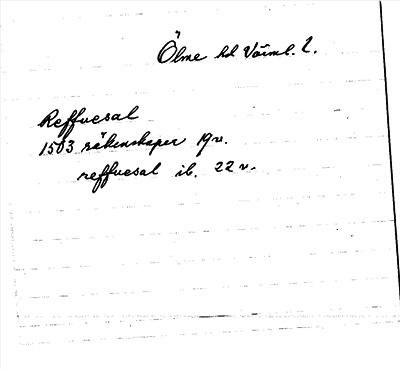 Ölme hd Värml. l.
Reffuesal
1503 räkenskaper 19 v.
reffuesal ib. 22 v.